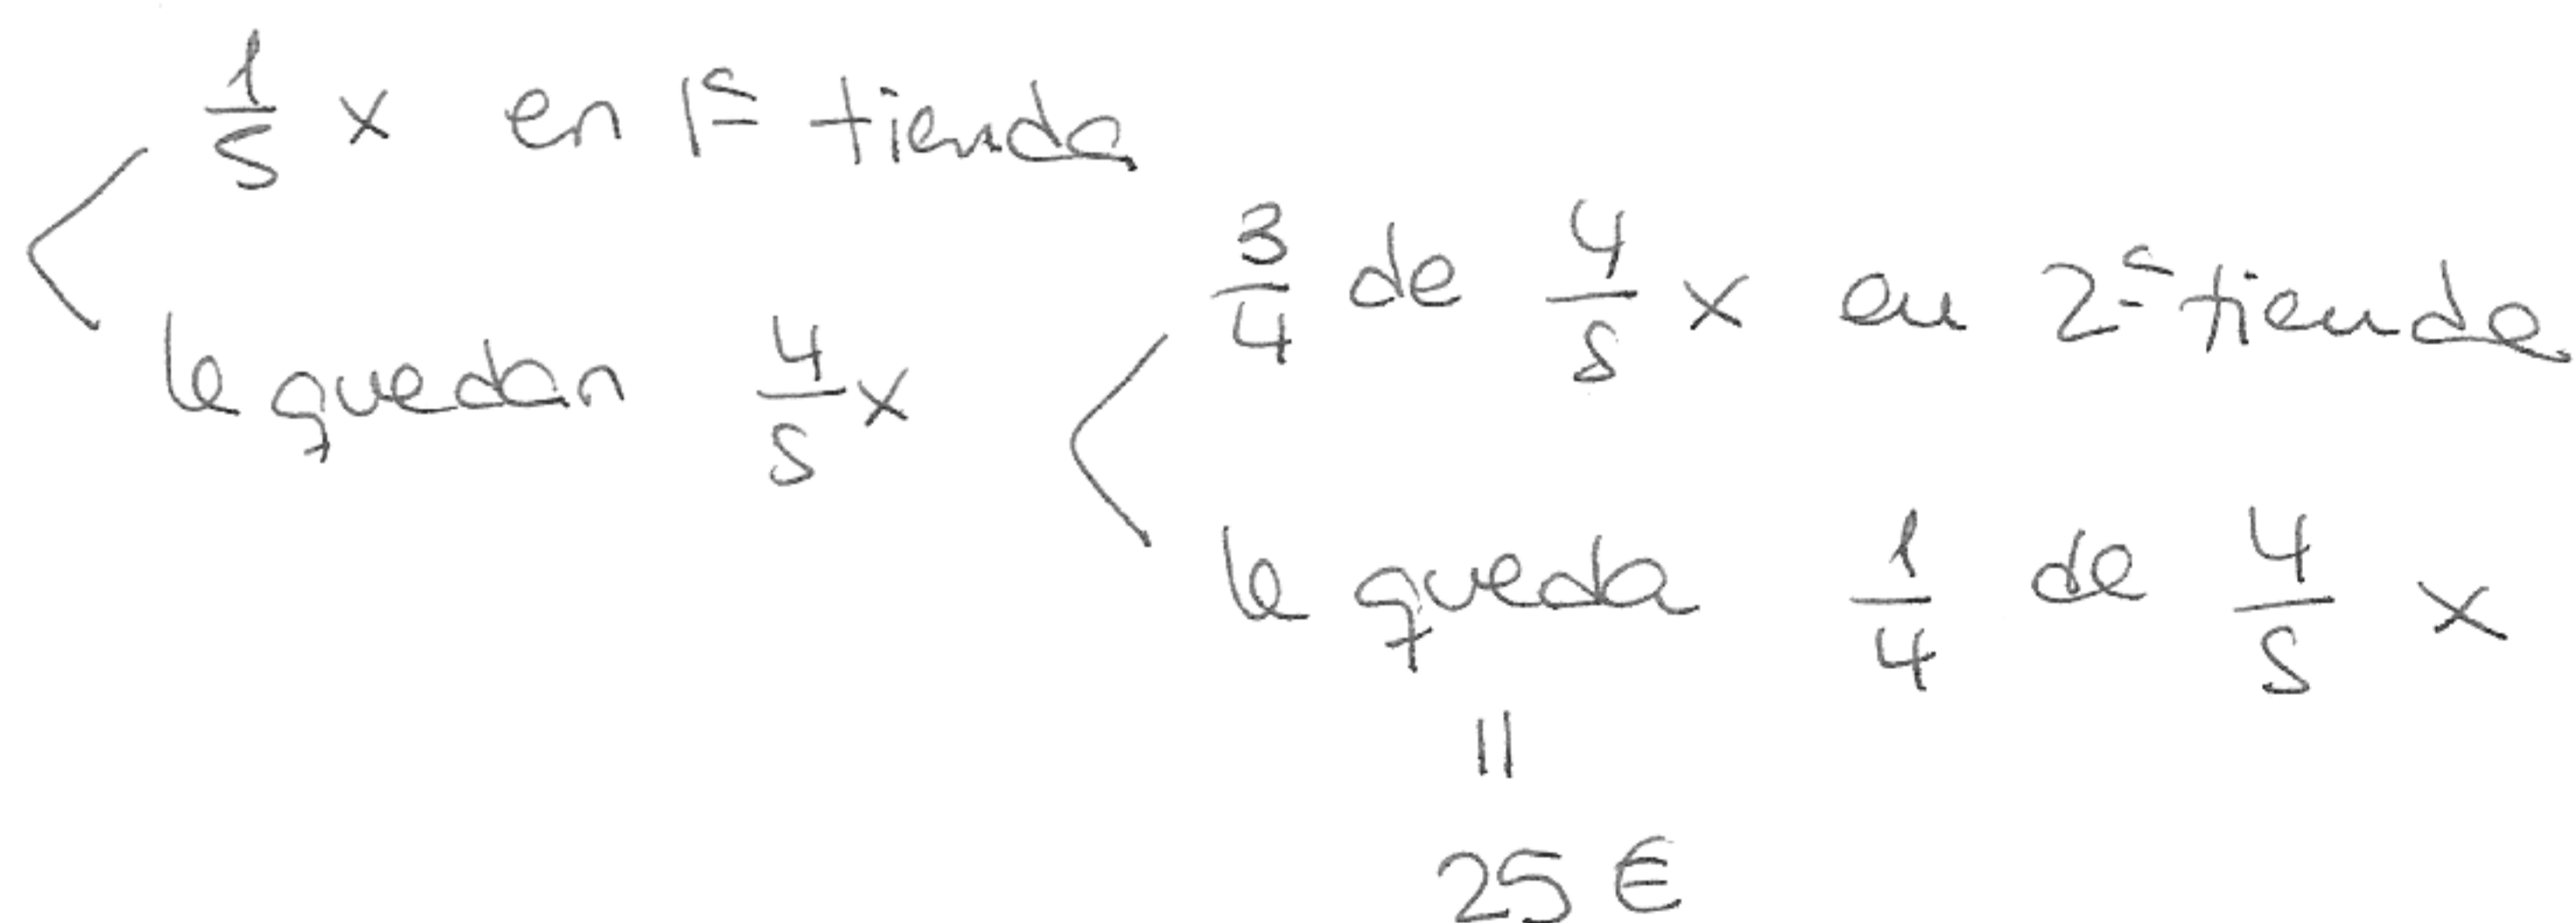 1/5 x en 1ª tienda
le quedan 4/5 x
3/4 de 4/5 x en 2ª tienda
le queda 1/4 de 4/5 x
=
25 €